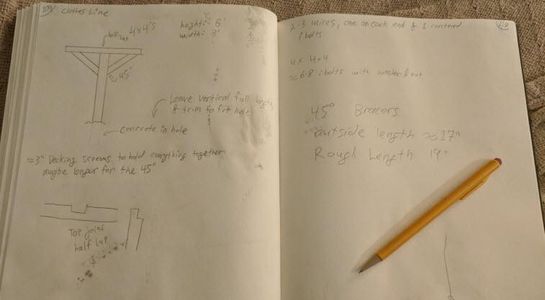 clothes Line
half lap
4x4's
height: 6'
width: 3'
45°
Leave vertical full length
& trim to fit hole
concrete in hole
≈3" Decking screws to hold everything together
maybe longer for the 45°
Top joint
half lap
2-3 wires, one on each end & 1 centered
I bolts
≈6-8 I bolts with washer & nut
45° Braces
outside length ≈17"
Rough Length 19"